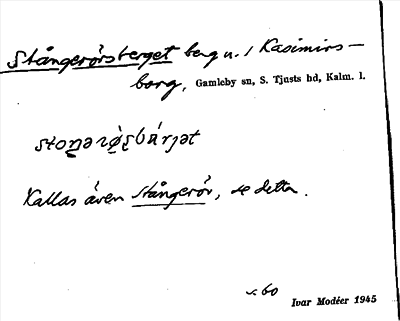 Stångerörsberget berg n. / Kasimirs-
borg, Gamleby sn, S. Tjusts hd, Kalm. l.
Kallas även Stångerör, se detta.
s. 60
Ivar Modéer 1945